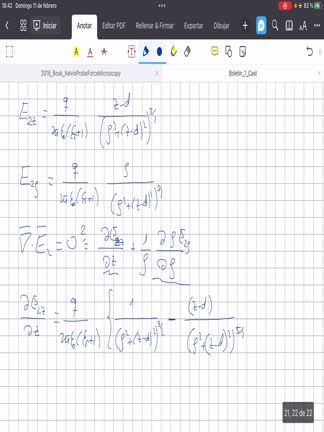 18:42 Domingo 11 de febrero
83 %
Iniciar Anotar Editar PDF Rellenar & Firmar Exportar Dibujar
2018_Book_KelvinProbeForceMicroscopy Boletin_1_Cast
E_{2z} = q/(2πε₀(ε₁+1)) (z-d)/(ρ²+(z-d)²)^{3/2}
E_{2ρ} = q/(2πε₀(ε₁+1)) ρ/(ρ²+(z-d)²)^{3/2}
∇·E₂ = 0 = ∂E_{2z}/∂z + 1/ρ ∂ρE_{2ρ}/∂ρ
∂E_{2z}/∂z = q/(2πε₀(ε₁+1)) { 1/(ρ²+(z-d)²)^{3/2} - (z-d)/(ρ²+(z-d)²)^{5/2}
21, 22 de 22